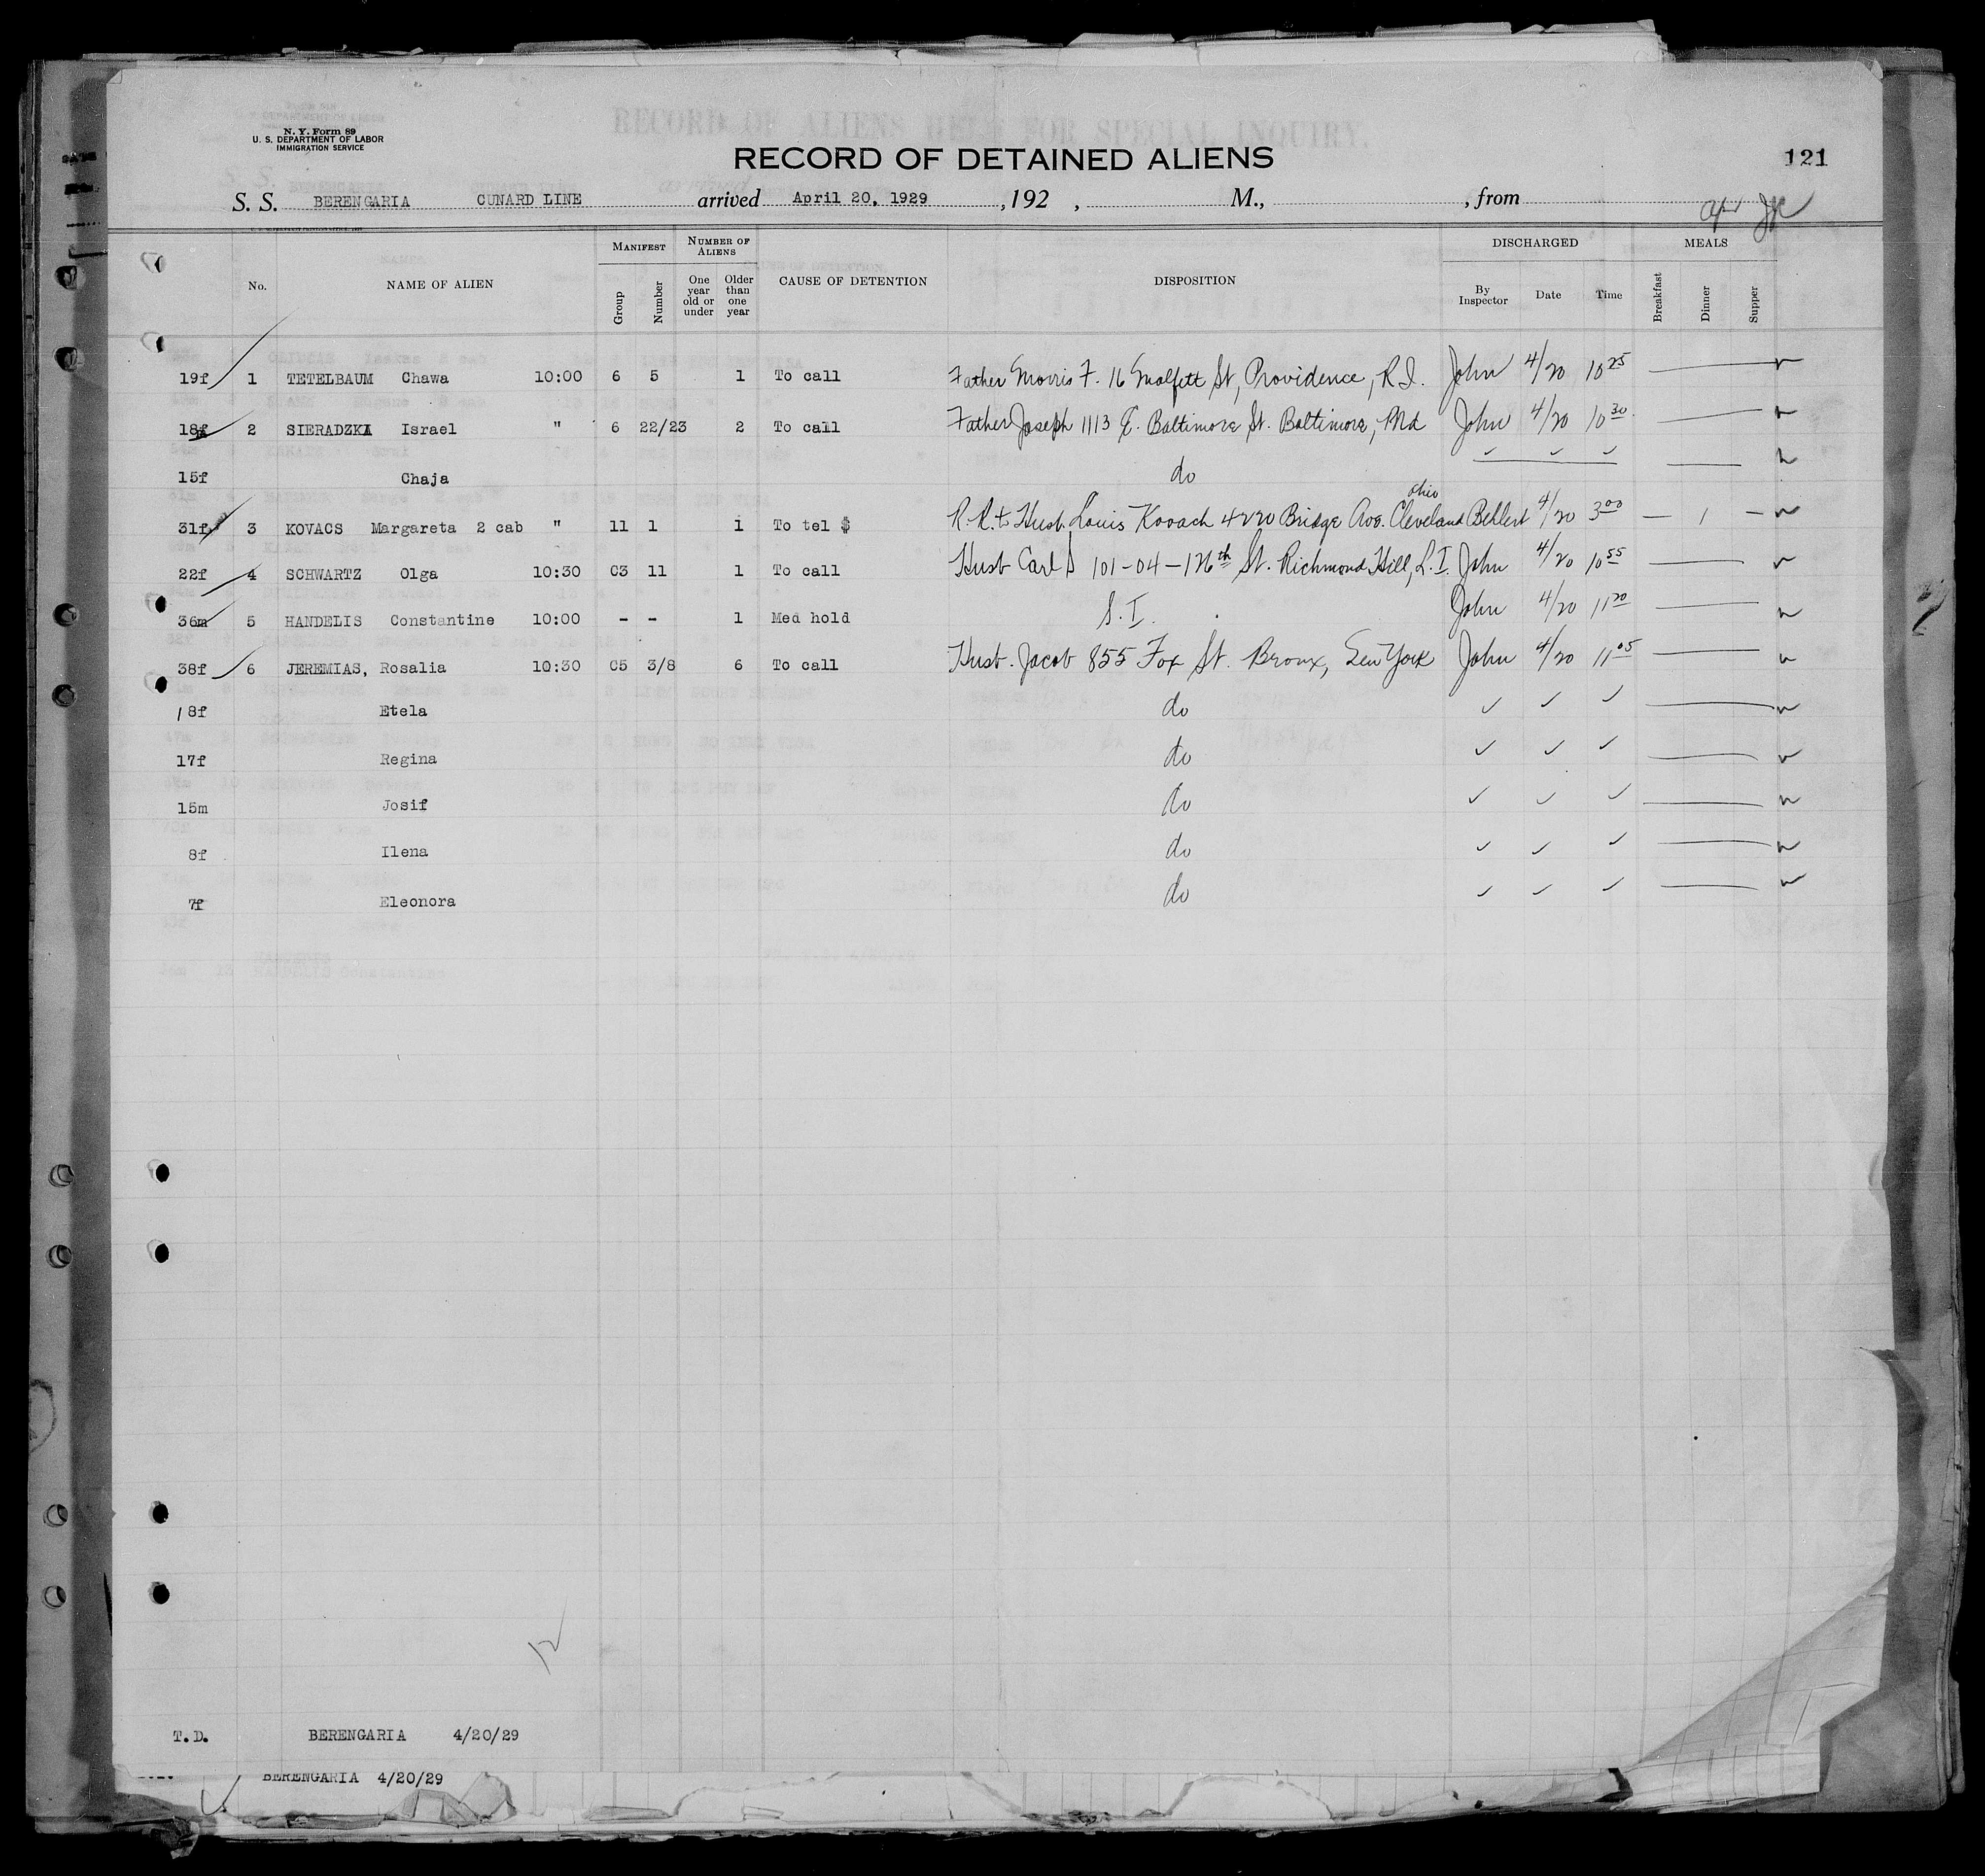 N. Y. Form 89
U. S. DEPARTMENT OF LABOR
IMMIGRATION SERVICE
RECORD OF ALIENS HELD FOR SPECIAL INQUIRY.
RECORD OF DETAINED ALIENS
121
S. S. BERENGARIA CUNARD LINE arrived April 20, 1929 , 192 , M., , from
MANIFEST NUMBER OF ALIENS DISCHARGED MEALS
No. NAME OF ALIEN Group Number One year old or under Older than one year CAUSE OF DETENTION DISPOSITION By Inspector Date Time Breakfast Dinner Supper
19f 1 TETELBAUM Chawa 10:00 6 5 1 To call Father Morris F. 16 Malfett St, Providence, R.I. John 4/20 10 25
18f 2 SIERADZKI Israel " 6 22/23 2 To call Father Joseph 1113 E. Baltimore St. Baltimore, Md John 4/20 10 30
15f Chaja do ✓ ✓ ✓
31f 3 KOVACS Margareta 2 cab " 11 1 1 To tel $ R.R.t. Husb. Louis Kovach 4220 Bridge Ave. Cleveland Ohio Behlert 4/20 3 00 — 1 —
22f 4 SCHWARTZ Olga 10:30 C3 11 1 To call Husb Carl S 101-04-126th St. Richmond Hill, L.I. John 4/20 10 55
36m 5 HANDELIS Constantine 10:00 - - 1 Med hold S.I. John 4/20 11 20
38f 6 JEREMIAS, Rosalia 10:30 C5 3/8 6 To call Husb. Jacob 855 Fox St. Bronx, New York John 4/20 11 05
18f Etela do ✓ ✓ ✓
17f Regina do ✓ ✓ ✓
15m Josif do ✓ ✓ ✓
8f Ilena do ✓ ✓ ✓
7f Eleonora do ✓ ✓ ✓
12
T.D. BERENGARIA 4/20/29
BERENGARIA 4/20/29